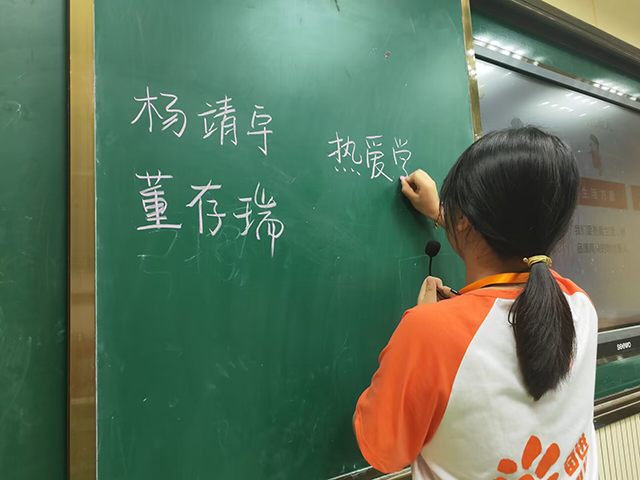 杨靖宇
董存瑞
热爱学